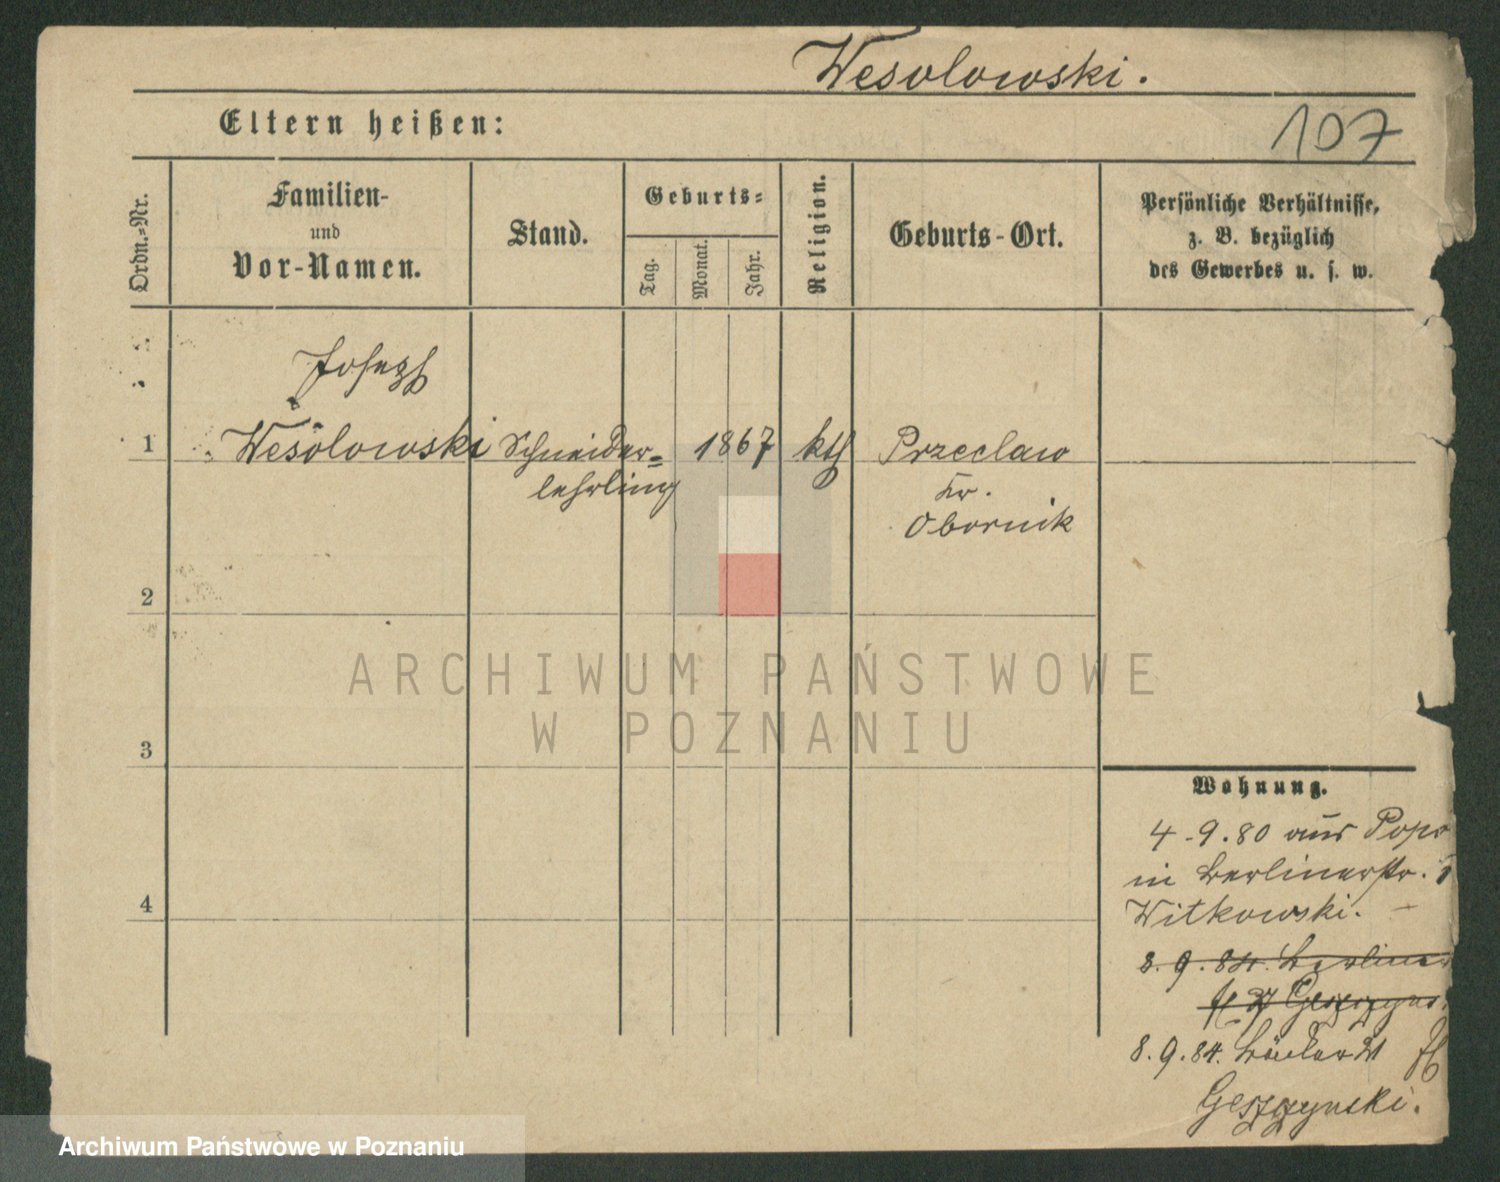 Wesolowski.
Eltern heißen:
107
Ordn.=Nr.
Familien-
und
Vor-Namen.
Stand.
Geburts=
Tag.
Monat.
Jahr.
Religion.
Geburts-Ort.
Persönliche Verhältnisse,
z. B. bezüglich
des Gewerbes u. s. w.
Joseph
1 Wesolowski Schneider= 1867 kth Przeclaw
lehrling Kr.
Obornik
2
3
4
ARCHIWUM PAŃSTWOWE
W POZNANIU
Wohnung.
4-9.80 aus Popo
in Berlinerstr.
Witkowski.
8.9.84. Berliner
27
8.9.84. Bäcker 21
Archiwum Państwowe w Poznaniu